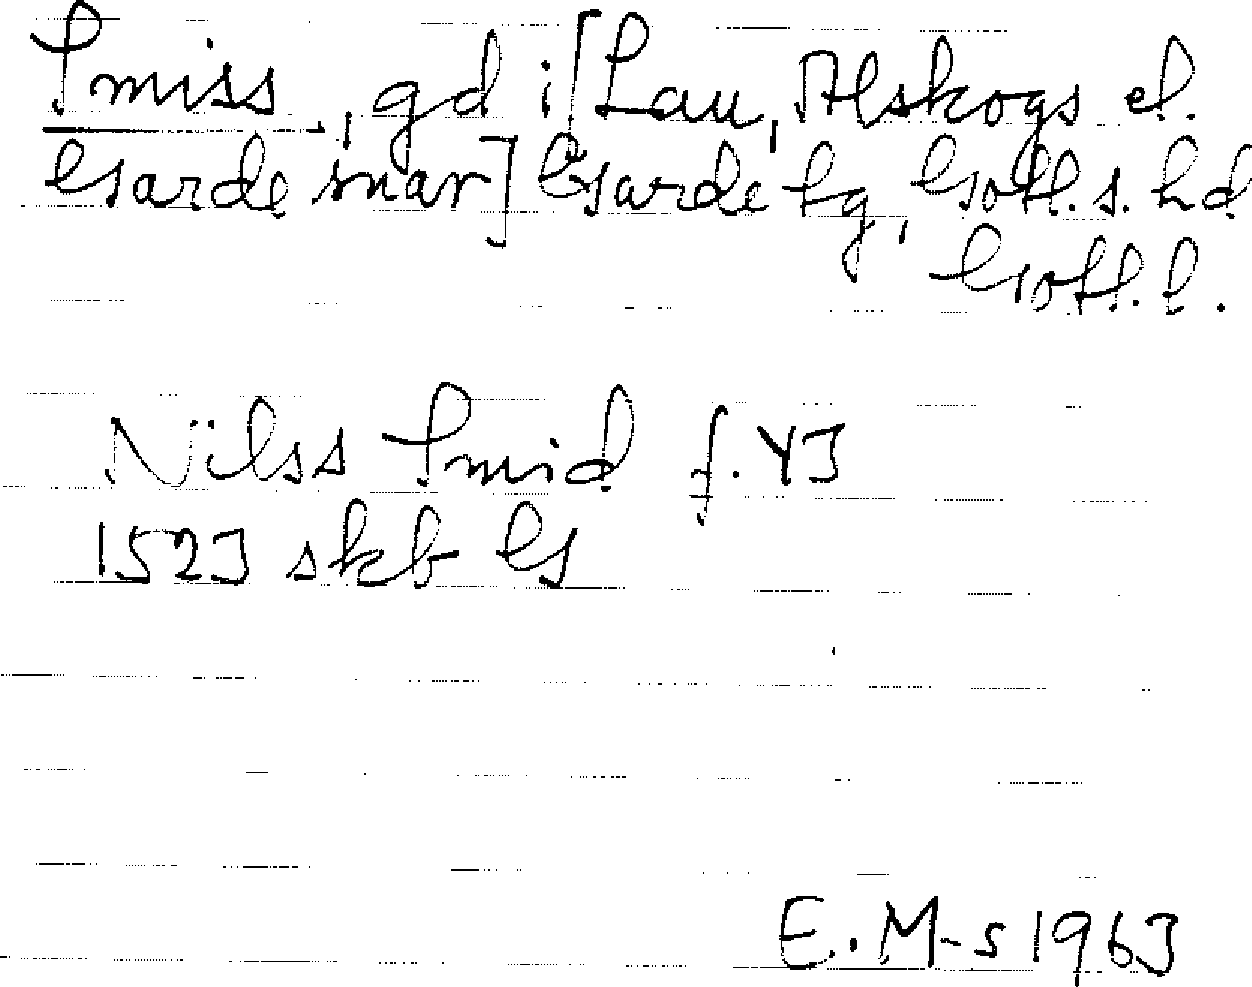 Smiss, gd i [Lau, Alskogs el.
Garde snar] Garde tg, Gotl. s. hd
Gotl. l.
Nilss Smid f. 43
1523 skb G
E. M-s 1963